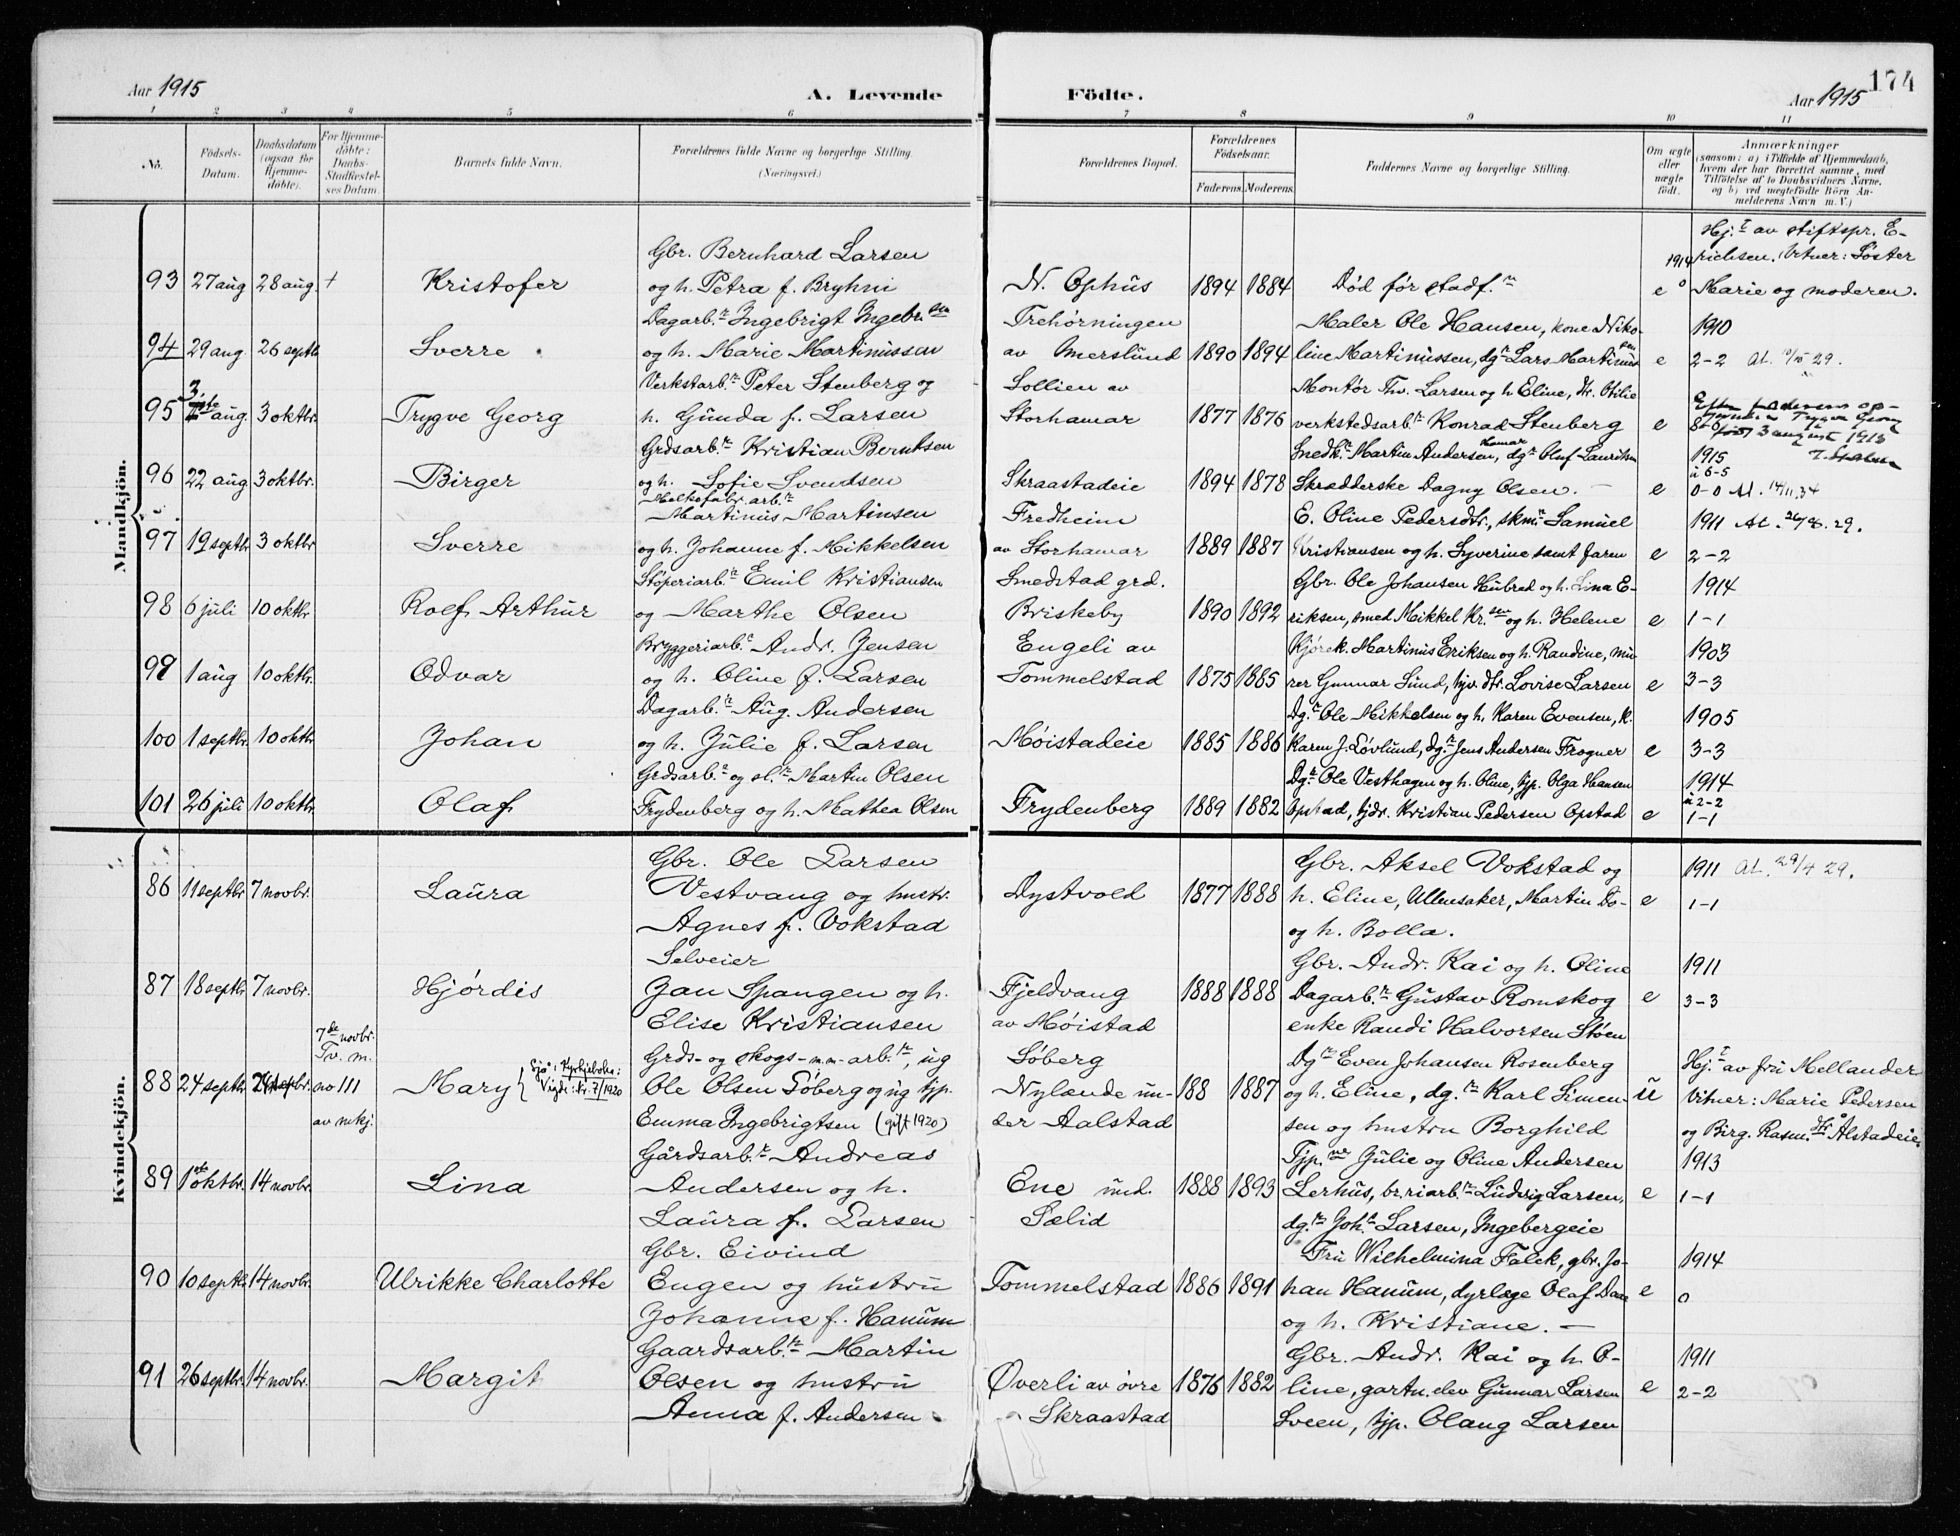 174
Aar 1915
A. Levende
Födte.
Aar 1915
1 2 3 4 5 6 7 8 9 10 11
No.
Födsels-Datum.
Daabsdatum (ogsaa for Hjemme-döbte).
For Hjemme-döbte: Daabs-Stadfæstel-ses Datum.
Barnets fulde Navn.
Forældrenes fulde Navne og borgerlige Stilling.
(Næringsvei.)
Forældrenes Bopæl.
Forældrenes Födselsaar.
Faderens. Moderens.
Faddernes Navne og borgerlige Stilling.
Om ægte eller uægte födt.
Anmærkninger
(saasom: a) i Tilfælde af Hjemmedaab,
hvem der har forrettet samme, med
Tilföielse af to Daabsvidners Navne,
og b) ved uægtefödte Börn An-
melderens Navn m. V.)
Mandkjön.
Gbr. Bernhard Larsen Hj.t av stiftspr. E-
93 27 aug 28 aug. + Kristofer og h. Petra f. Bryhni N. Ophus 1894 1884 Død før stadf. e 1914 0 richsen. Vitner: Søster
Marie og moderen.
Dagarb. Ingebrigt Ingebr.sen Trehørningen Maler Ole Hansen, kone Niko- 1910
94 29 aug. 26 septb. Sverre og h. Marie Martinussen av Imerslund 1890 1894 line Martinussen, dg. Lars Martinussen e 2-2 At. 10/5 29.
Verkstarb. Peter Stenberg og Sollien av Montør Thv. Larsen og h Eline, dtr. Otilie
95 3 aug. 3 oktbr. Trygve Georg h. Gunda f. Larsen Storhamar 1877 1876 verkstedsarb. Konrad Stenberg e 8-6 født 3 august 1913
Grdsarb. Kristian Berntsen Snedk. Martin Andersen, Hamar dg. Oluf Lauritsen 1915
96 22 aug 3 oktbr. Birger og h. Sofie Svendsen Skraastadeie 1894 1878 Skrædderske Dagny Olsen. e u 6-5 0-0 At. 14/11.34
Melkefabr. arb.
Martinus Martinsen Fredheim E. Oline Pedersdtr., skm. Samuel 1911 At. 26/8. 29.
97 19 septb 3 oktbr Sverre og h. Johanne f. Mikkelsen av Storhamar 1889 1887 Kristiansen og h. Syverine samt faren e 2-2
Støperiarb. Emil Kristiansen Smedstad grd. Gbr. Ole Johansen Hubred og h. Lina E- 1914
98 6 juli 10 oktbr. Rolf Arthur og Marthe Olsen Briskeby 1890 1892 riksen, smed Mikkel Kr.sen og h. Helene e 1-1
Bryggeriarb. Andr. Jensen Engeli av Kjørek. Martinus Eriksen og h. Randine, mu- 1903
99 1 aug 10 oktbr. Odvar og h. Oline f. Larsen Tommelstad 1875 1885 rer Gunnar Lund, hjv. dtr. Lovise Larsen e 3-3
Dagarb. Aug. Andersen Dg. Ole Mikkelsen og h. Karen Evensen, k. 1905
100 1 septb 10 oktbr Johan og h. Julie f. Larsen Møistadeie 1885 1886 Karen J. Løvlund, dg. Jens Andersen Frogner e 3-3
Grdsarb. og sl. Martin Olsen Dg. Ole Vesthagen og h. Oline, tjp. Olga Hansen 1914
101 26 juli 10 oktbr. Olaf Frydenberg og h. Mathea Olsen Frydenberg 1889 1882 Opstad, tjdr. Kristian Pedersen Opstad e u 2-2 1-1
Kvindekjön.
Gbr. Ole Larsen Gbr. Aksel Vokstad og 1911 At. 29/4 29.
86 11 septbr. 7 novbr. Laura Vestvang og hustr. Dystvold 1877 1888 h. Eline, Ullensaker, Martin Do- e 1-1
Agnes f. Vokstad og h. Bolla.
Selveier Gbr. Andr. Kai og h. Oline 1911
87 18 septb 7 novbr. Hjørdis Jan Spangen og h. Fjeldvang 1888 1888 Dagarb. Gustav Romskog e 3-3
Elise Kristiansen av Møistad enke Randi Halvorsen Støen
7de novbr. Tv. m. Grds- og skogs- m.m-arb., ug Søberg Dg. Even Johansen Rosenberg Hj.t av fru Mellander
88 24 septb 24 septbr. no 111 Mary { Sjå i Kyrkjeboka: Vigde: Nr. 7/1920 Ole Olsen Søberg og ug tjp. Nylænde un- 188 1887 og h. Eline, dg. Karl Simen- u Vitner: Marie Pedersen
av mkj. Emma Ingebrigtsen (gift 1920) der Aalstad sen og hustru Borghild og Birg. Rasm.dtr Ålstadeie
Gårdsarb. Andreas Tjp. Julie og Oline Andersen 1913
89 1ste oktbr. 14 novbr. Lina Andersen og h. Ene und. 1888 1893 Lerhus, br.riarb. Ludvig Larsen, e 1-1
Laura f. Larsen Sælid dg. Joh. Larsen, Ingebergeie
Gbr. Eivind Fru Wilhelmina Falck, gbr. Jo- 1914
90 10 septb 14 novbr. Ulrikke Charlotte Engen og hustru Tommelstad 1886 1891 han Hanum, dyrlæge Olaf Daae e 0
Johanne f. Hanum og h. Kristiane.
Gaardsarb. Martin Gbr. Andr. Kai og h. O- 1911
91 26 septbr. 14 novbr. Margit Olsen og hustru Øverli av øvre 1876 1882 line, gartn.elev Gunnar Larsen e 2-2
Anna f. Andersen Skraastad Sveen, tjp. Olaug Larsen